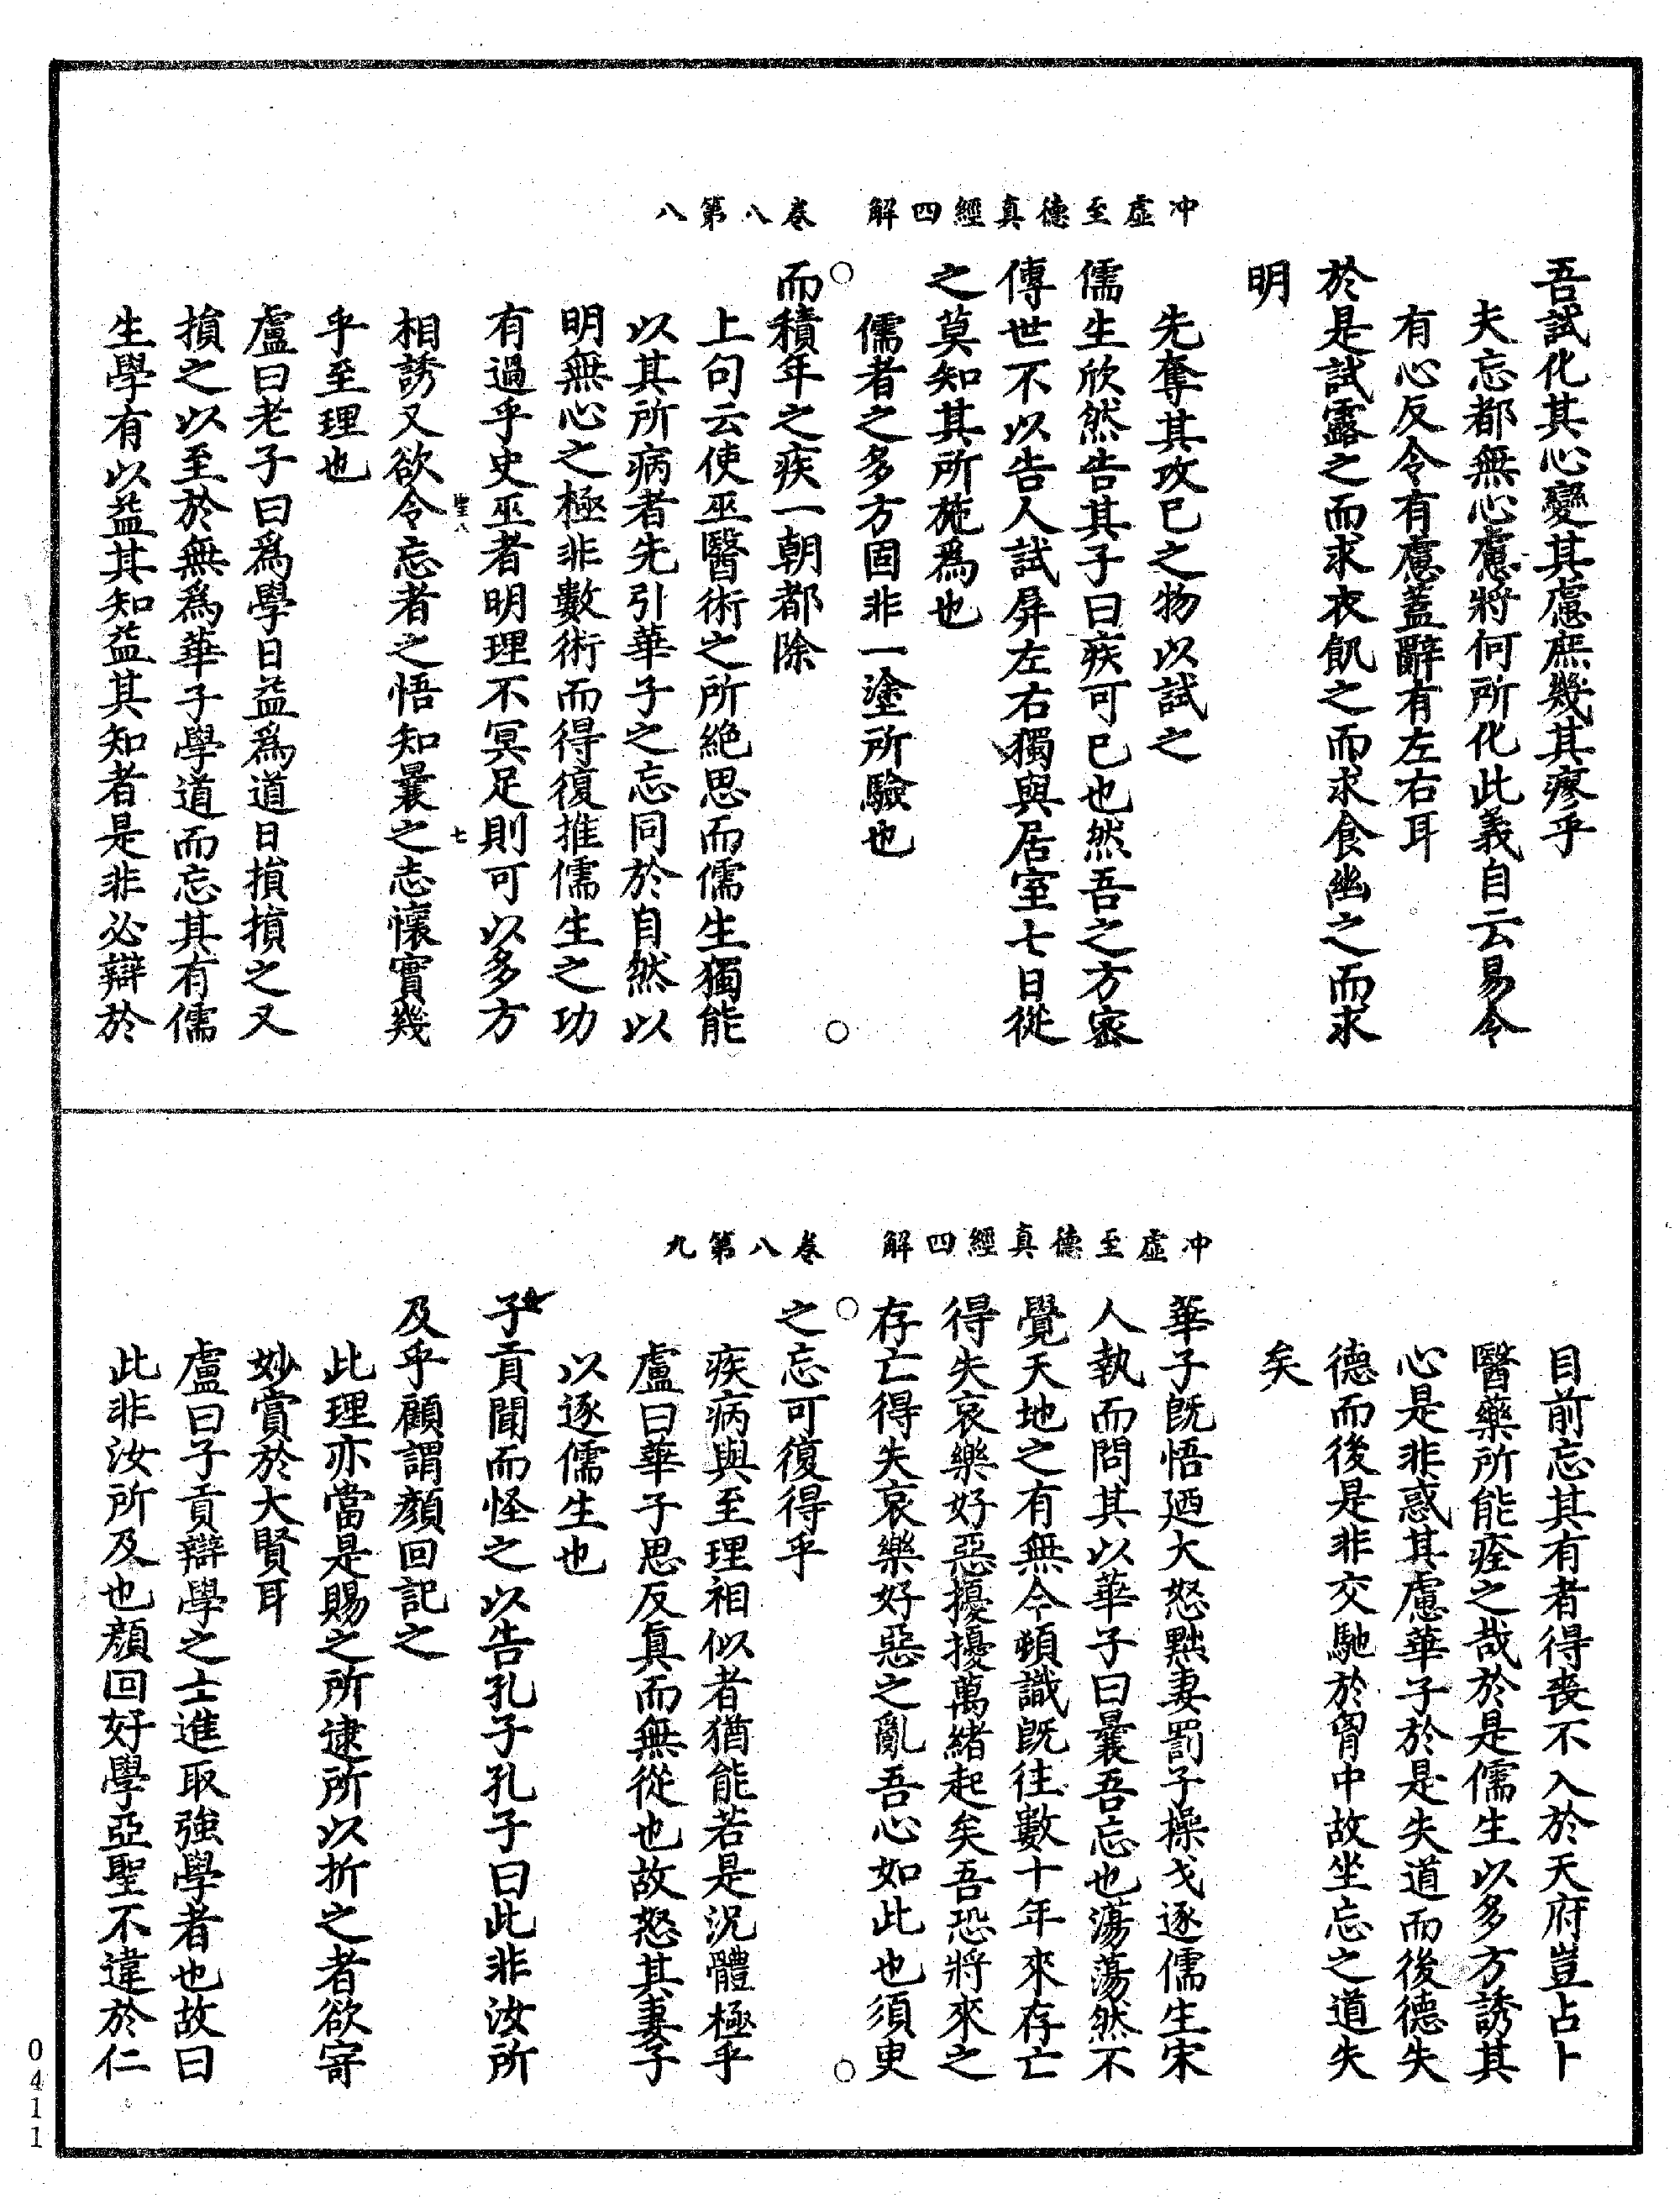 冲虛至德真經四解　卷八第八
吾試化其心變其慮庶幾其瘳乎
夫忘都無心慮將何所化此義自云易令
有心反令有慮蓋辭有左右耳
於是試露之而求衣飢之而求食幽之而求
明
先奪其攻已之物以試之
儒生欣然告其子曰疾可已也然吾之方密
傳世不以告人試屏左右獨與居室七日從
之莫知其所施爲也
儒者之多方固非一塗所驗也
而積年之疾一朝都除
上句云使巫醫術之所絕思而儒生獨能
以其所病者先引華子之忘同於自然以
明無心之極非數術而得復推儒生之功
有過乎史巫者明理不冥足則可以多方
聖八　七
相誘又欲令忘者之悟知曩之志懷實幾
乎至理也
盧曰老子曰爲學日益爲道日損損之又
損之以至於無爲華子學道而忘其有儒
生學有以益其知益其知者是非必辯於
冲虛至德真經四解　卷八第九
目前忘其有者得喪不入於天府豈占卜
醫藥所能痊之哉於是儒生以多方誘其
心是非惑其慮華子於是失道而後德失
德而後是非交馳於胷中故坐忘之道失
矣
華子旣悟迺大怒黜妻罰子操戈逐儒生宋
人執而問其以華子曰曩吾忘也蕩蕩然不
覺天地之有無今頓識旣往數十年來存亡
得失哀樂好惡擾擾萬緒起矣吾恐將來之
存亡得失哀樂好惡之亂吾心如此也須臾
之忘可復得乎
疾病與至理相似者猶能若是況體極乎
盧曰華子思反真而無從也故怒其妻子
以逐儒生也
子貢聞而怪之以告孔子孔子曰此非汝所
及乎顧謂顏回記之
此理亦當是賜之所逮所以折之者欲寄
妙賞於大賢耳
盧曰子貢辯學之士進取強學者也故曰
此非汝所及也顏回好學亞聖不違於仁
0411